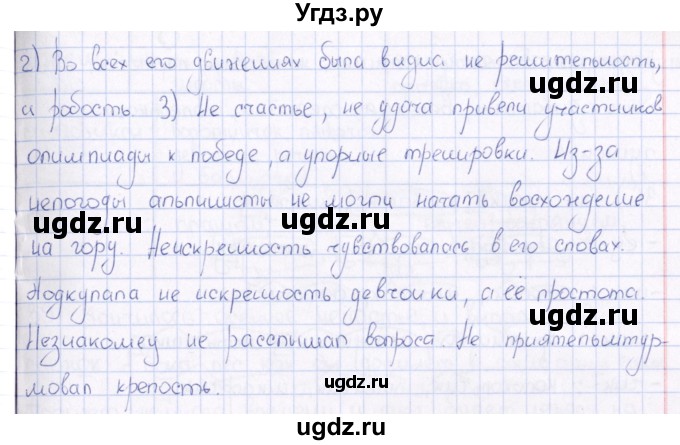 Угдз.ру
2) Во всех его движениях была видна не решительность,
а робость. 3) Не счастье, не удача привели участников
олимпиады к победе, а упорные тренировки. Из-за
непогоды альпинисты не могли начать восхождение
ugdz.ru ugdz.ru
на гору. Неискренность чувствовалась в его словах.
Подкупала не искренность девчонки, а её простота.
ugdz.ru
Незнакомец не расслышал вопроса. Не приятель штур-
мовал крепость.
ugdz.ru
ugdz.ru